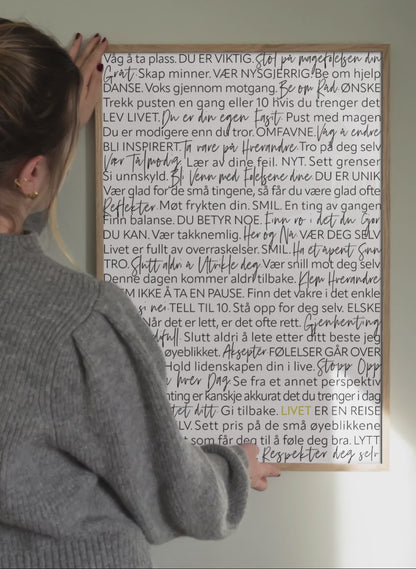 Våg å ta plass. DU ER VIKTIG. Stol på magefølelsen din
Gråt. Skap minner. VÆR NYSGJERRIG. Be om hjelp
DANSE. Voks gjennom motgang. Be om Råd ØNSKE
Trekk pusten en gang eller 10 hvis du trenger det
LEV LIVET. Du er din egen Fasit. Pust med magen
Du er modigere enn du tror. OMFAVNE. Våg å endre
BLI INSPIRERT. Ta vare på Hverandre Tro på deg selv
Vær Tålmodig. Lær av dine feil. NYT. Sett grenser
Si unnskyld. Bli Venn med Følelsene dine DU ER UNIK
Vær glad for de små tingene, så får du være glad ofte
Reflekter. Møt frykten din. SMIL. En ting av gangen
Finn balanse. DU BETYR NOE. Finn ro i det du Gjør
DU KAN. Vær takknemlig. Her og Nå VÆR DEG SELV
Livet er fullt av overraskelser. SMIL. Ha et åpent Sinn
TRO. Slutt aldri å Utvikle deg Vær snill mot deg selv
Denne dagen kommer aldri tilbake. Klem Hverandre
EM IKKE Å TA EN PAUSE. Finn det vakre i det enkle
si nei TELL TIL 10. Stå opp for deg selv. ELSKE
Når det er lett, er det ofte rett. Gjenhenting
dfull. Slutt aldri å lete etter ditt beste jeg
øyeblikket. Aksepter FØLELSER GÅR OVER
Hold lidenskapen din i live. Stopp Opp
hver Dag Se fra et annet perspektiv
nting er kanskje akkurat det du trenger i dag
tet ditt Gi tilbake. LIVET ER EN REISE
LV. Sett pris på de små øyeblikkene
som får deg til å føle deg bra. LYTT
Respekter deg selv